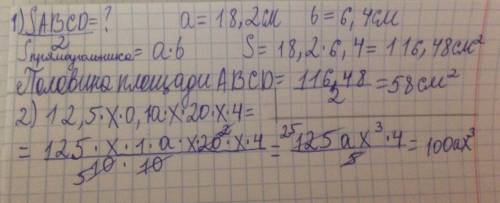 1) SABCD/2 = ? a = 18,2см b = 6,4см
Sпрямоугольника = a·b S = 18,2·6,4 = 116,48см²
Половина площади ABCD = 116,48/2 = 58см²
2) 12,5·x·0,1a·x·20·x·4=
= 125·x·1·a·x·20²·x·4/5 10·10 = ²⁵125ax³·4/5 = 100ax³